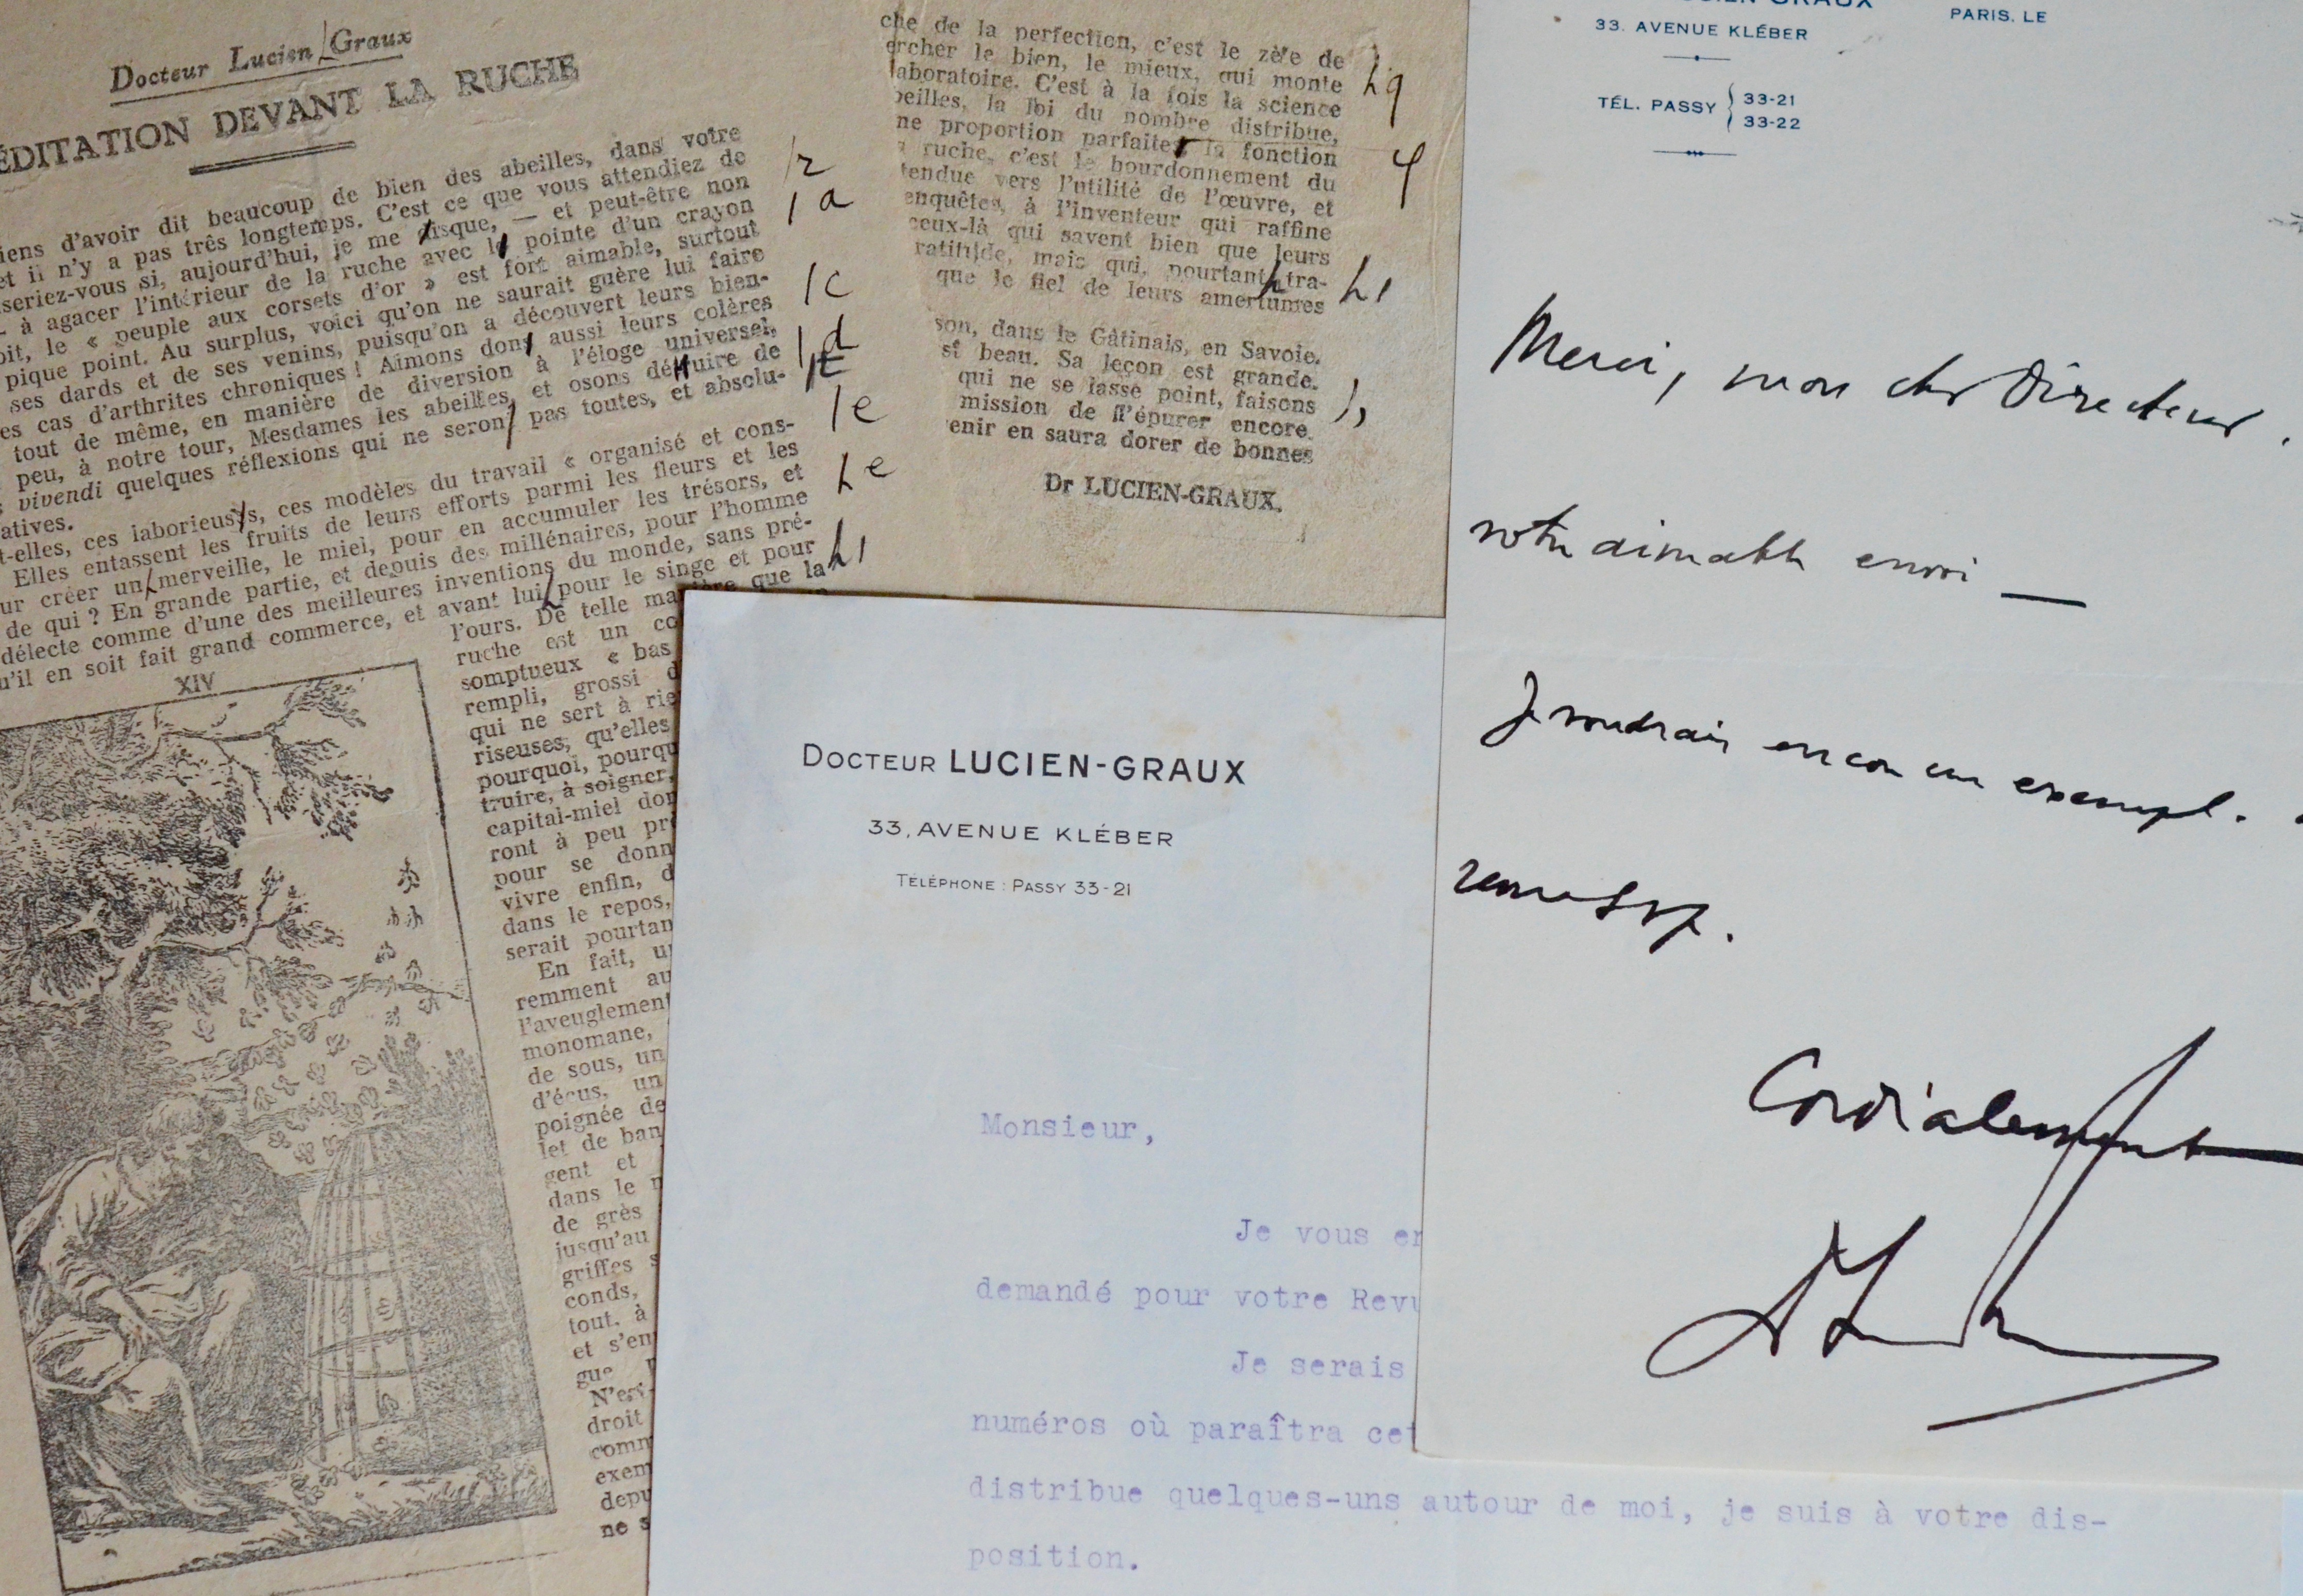 Docteur Lucien/Graux
ÉDITATION DEVANT LA RUCHE
iens d'avoir dit beaucoup de bien des abeilles, dans votre
et il n'y a pas très longtemps. C'est ce que vous attendiez de
seriez-vous si, aujourd'hui, je me risque, — et peut-être non
à agacer l'intérieur de la ruche avec la pointe d'un crayon
oit, le « peuple aux corsets d'or » est fort aimable, surtout
pique point. Au surplus, voici qu'on ne saurait guère lui faire
ses dards et de ses venins, puisqu'on a découvert leurs bien-
es cas d'arthrites chroniques ! Aimons donc aussi leurs colères
tout de même, en manière de diversion à l'éloge universel,
peu, à notre tour, Mesdames les abeilles, et osons déduire de
vivendi quelques réflexions qui ne seront pas toutes, et absolu-
atives.
t-elles, ces laborieuses, ces modèles du travail « organisé et cons-
Elles entassent les fruits de leurs efforts parmi les fleurs et les
ur créer un/merveille, le miel, pour en accumuler les trésors, et
de qui ? En grande partie, et depuis des millénaires, pour l'homme
délecte comme d'une des meilleures inventions du monde, sans pré-
u'il en soit fait grand commerce, et avant lui pour le singe et pour
l'ours. De telle manière que la
ruche est un co
somptueux « bas
rempli, grossi d
qui ne sert à rie
riseuses, qu'elles
pourquoi, pourqu
truire, à soigner,
capital-miel don
ront à peu pr
pour se donn
vivre enfin, d
dans le repos,
serait pourtan
En fait, u
remment au
l'aveuglement
monomane,
de sous, un
d'écus, un
poignée de
let de ban
gent et
dans le
de grès
jusqu'au
griffes s
conds,
tout, à
et s'en
gue
N'est
droit
comm
exem
depu
ne s
XIV
r
a
c
d
t
e
e
che de la perfection, c'est le zèle de
ercher le bien, le mieux, qui monte
laboratoire. C'est à la fois la science
beilles, la loi du nombre distribue,
ne proportion parfaite, la fonction
ruche, c'est le bourdonnement du
tendue vers l'utilité de l'œuvre, et
enquêtes, à l'inventeur qui raffine
ceux-là qui savent bien que leurs
ratitude, mais qui, pourtant tra-
que le fiel de leurs amertumes
son, dans le Gâtinais, en Savoie.
si beau. Sa leçon est grande.
qui ne se lasse point, faisons
mission de l'épurer encore.
enir en saura dorer de bonnes
Dr LUCIEN-GRAUX.
DOCTEUR LUCIEN-GRAUX
33, AVENUE KLÉBER
TÉLÉPHONE : PASSY 33-21
Monsieur,
Je vous en
demandé pour votre Revu
Je serais
numéros où paraîtra cet
distribue quelques-uns autour de moi, je suis à votre dis-
position.
CIEN GRAUX
33. AVENUE KLÉBER
TÉL. PASSY { 33-21
33-22
PARIS, LE
Merci, mon cher Directeur.
votre aimable envoi —
Je voudrais encore un exempl.
Cordialement